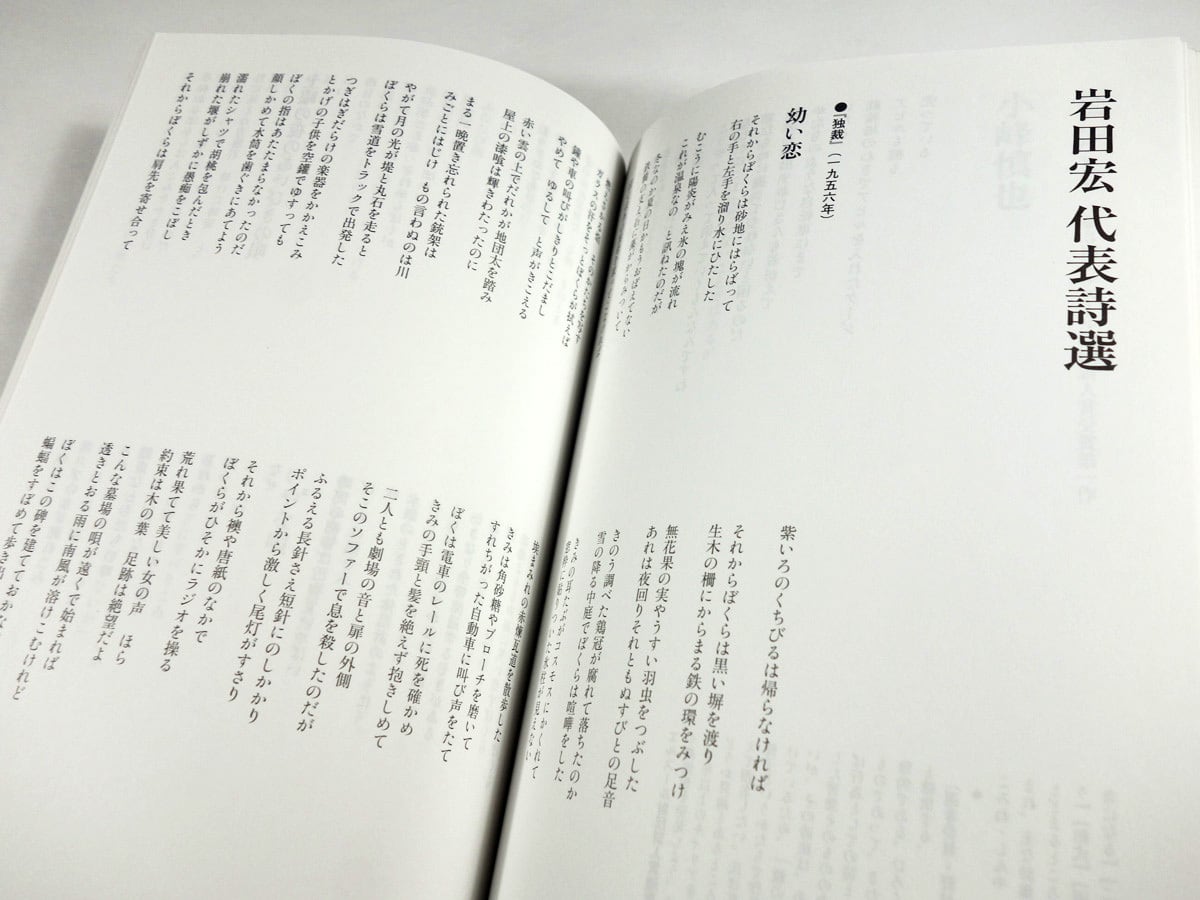 岩田宏 代表詩選
●『独裁』（一九五六年）
幼い恋
それからぼくらは砂地にはらばって
右の手と左手を溜り水にひたした
むこうに陽炎がみえ氷の塊が流れ
これが温泉なの　と訊ねたのだが
冬なのか夏の日かもうおぼえてない
紫いろのくちびるは帰らなければ
それからぼくらは黒い塀を渡り
生木の柵にからまる鉄の環をみつけ
無花果の実やうすい羽虫をつぶした
あれは夜回りそれともぬすびとの足音
きのう調べた鶏冠が腐れて落ちたのか
雪の降る中庭でぼくらは喧嘩をした
きみの耳たぶがコスモスにかくれて
窓枠に粘りついた氷柱が見えない
ガラスの杯をそっとぼくらが拭えば
鐘や車の叫びがしきりとこだまし
やめて　ゆるして　と声がきこえる
赤い雲の上でだれかが地団太を踏み
屋上の漆喰は輝きわたったのに
まる一晩置き忘れられた銃架は
みごとにはじけ　もの言わぬのは川
やがて月の光が堤と丸石を走ると
ぼくらは雪道をトラックで出発した
つぎはぎだらけの楽器をかかえこみ
とかげの子供を空罐でゆすっても
ぼくの指はあたたまらなかったのだ
顔しかめて水筒を歯ぐきにあてよう
濡れたシャツで胡桃を包んだとき
崩れた堰がしずかに愚痴をこぼし
それからぼくらは肩先を寄せ合って
埃まみれの赤煉瓦道を散歩した
きみは角砂糖やブローチを磨いて
すれちがった自動車に叫び声をたて
ぼくは電車のレールに死を確かめ
きみの手頸と髪を絶えず抱きしめて
二人とも劇場の音と扉の外側
そこのソファーで息を殺したのだが
ふるえる長針さえ短針にのしかかり
ポイントから激しく尾灯がすさり
それから襖や唐紙のなかで
ぼくらがひそかにラジオを操る
荒れ果てて美しい女の声　ほら
約束は木の葉　足跡は絶望だよ
こんな墓場の唄が遠くで始まれば
透きとおる雨に南風が溶けこむけれど
ぼくはこの碑を建てておかな
蝙蝠をすぼめて歩き出